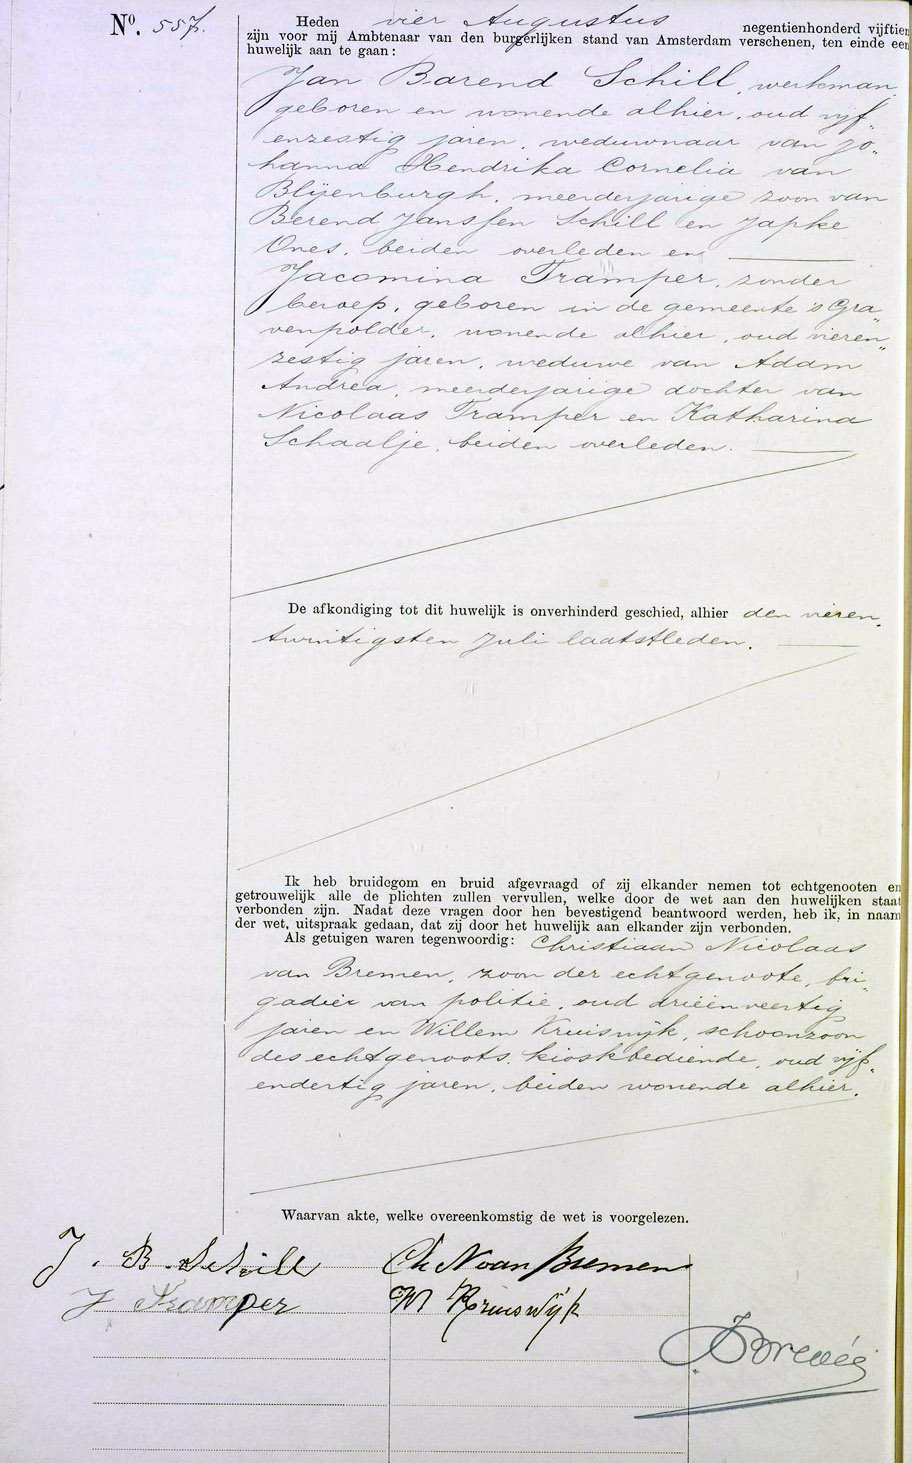 No. 557.
Heden vier Augustus negentienhonderd vijftien
zijn voor mij Ambtenaar van den burgerlijken stand van Amsterdam verschenen, ten einde een
huwelijk aan te gaan:
Jan Barend Schill, werkman,
geboren en wonende alhier, oud vijf„
enzestig jaren, weduwnaar van Jo„
hanna Hendrika Cornelia van
Blijenburgh, meerderjarige zoon van
Berend Janssen Schill en Japke
Ones, beiden overleden en
Jacomina Tramper, zonder
beroep, geboren in de gemeente 's Gra„
venpolder, wonende alhier, oud vieren„
zestig jaren, weduwe van Adam
Andrea, meerderjarige dochter van
Nicolaas Tramper en Katharina
Schaalje, beiden overleden.
De afkondiging tot dit huwelijk is onverhinderd geschied, alhier den vieren„
twintigsten Juli laatstleden.
Ik heb bruidegom en bruid afgevraagd of zij elkander nemen tot echtgenooten en
getrouwelijk alle de plichten zullen vervullen, welke door de wet aan den huwelijken staat
verbonden zijn. Nadat deze vragen door hen bevestigend beantwoord werden, heb ik, in naam
der wet, uitspraak gedaan, dat zij door het huwelijk aan elkander zijn verbonden.
Als getuigen waren tegenwoordig: Christiaan Nicolaas
van Bremen, zoon der echtgenoote, bri„
gadier van politie, oud drieënveertig
jaren en Willem Kruiswijk, schoonzoon
des echtgenoots, kioskbediende, oud vijf„
endertig jaren, beiden wonende alhier.
Waarvan akte, welke overeenkomstig de wet is voorgelezen.
J. B. Schill Ch N van Bremen
J Tramper W Kruiswijk